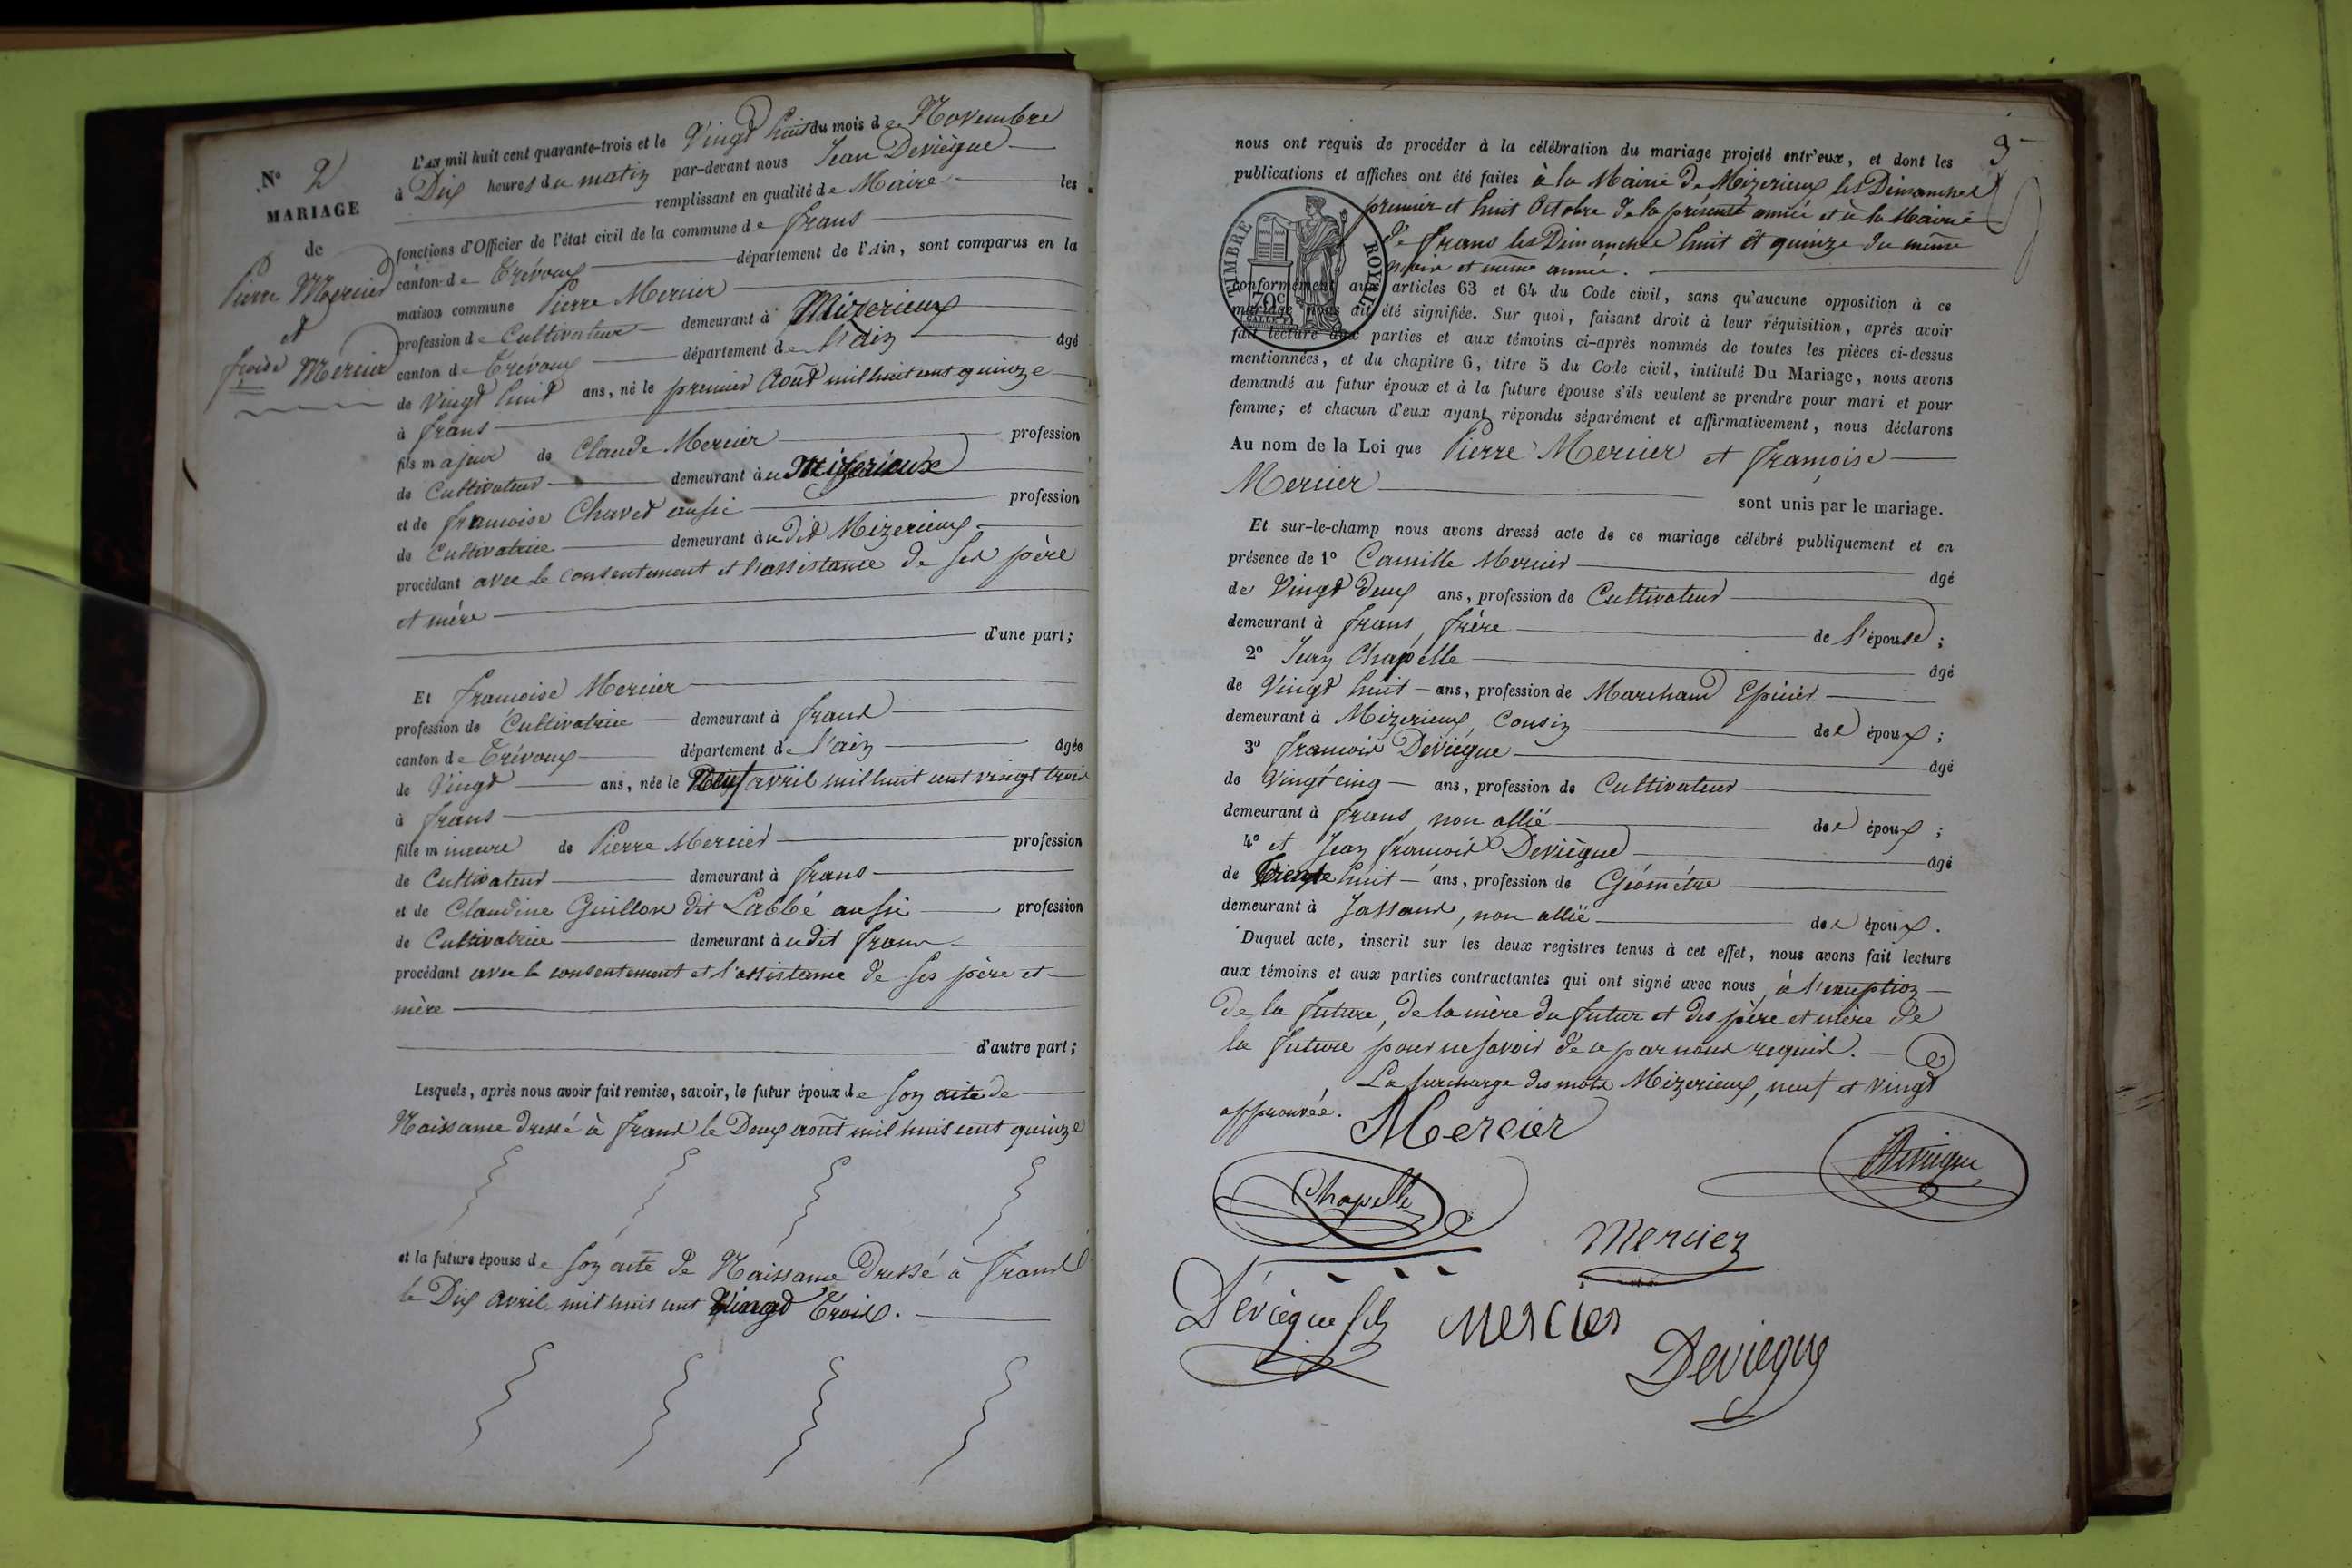 N° 2
MARIAGE
de
Pierre Mercier
et
fçoise Mercier
L'AN mil huit cent quarante-trois et le Vingt huit du mois de Novembre
à Dix heures du matin par-devant nous Jean Deviègue
remplissant en qualité de Maire les
fonctions d'Officier de l'état civil de la commune de frans
canton de Trévoux département de l'Ain, sont comparus en la
maison commune Pierre Mercier
profession de Cultivateur demeurant à Mizerieux
canton de Trévoux département de l'ain âgé
de Vingt huit ans, né le premier Août mil huit cent quinze
à frans
fils majeur de Claude Mercier profession
de Cultivateur demeurant à u Mizerieux
et de francoise Chavet aussi profession
de Cultivatrice demeurant à udit Mizerieux
procédant avec le consentement et l'assistance de ses père
et mère
d'une part;
Et francoise Mercier
profession de Cultivatrice demeurant à frans
canton de Trévoux département de l'ain âgée
de Vingt ans, née le Neuf avril mil huit cent vingt trois
à frans
fille mineure de Pierre Mercier profession
de Cultivateur demeurant à frans
et de Claudine Guillon dit Labbé aussi profession
de Cultivatrice demeurant à udit frans
procédant avec le consentement et l'assistance de ses père et
mère
d'autre part;
Lesquels, après nous avoir fait remise, savoir, le futur époux de son acte de
Naissance dressé à frans le Deux août mil huit cent quinze
et la future épouse de son acte de Naissance dressé à frans
le Dix avril mil huit cent Vingt Trois.
5
nous ont requis de procéder à la célébration du mariage projeté entr'eux, et dont les
publications et affiches ont été faites à la Mairie de Mizerieux les Dimanches
premier et huit Octobre de la présente année et à la Mairie
de frans les Dimanche huit et quinze du même
mois et même année.
TIMBRE ROYAL
70c
conformément aux articles 63 et 64 du Code civil, sans qu'aucune opposition à ce
mariage nous ait été signifiée. Sur quoi, faisant droit à leur réquisition, après avoir
fait lecture aux parties et aux témoins ci-après nommés de toutes les pièces ci-dessus
mentionnées, et du chapitre 6, titre 5 du Code civil, intitulé Du Mariage, nous avons
demandé au futur époux et à la future épouse s'ils veulent se prendre pour mari et pour
femme; et chacun d'eux ayant répondu séparément et affirmativement, nous déclarons
Au nom de la Loi que Pierre Mercier et francoise
Mercier sont unis par le mariage.
Et sur-le-champ nous avons dressé acte de ce mariage célébré publiquement et en
présence de 1° Camille Mercier âgé
de Vingt Deux ans, profession de Cultivateur
demeurant à frans, frère de l'épouse;
2° Jean Chapelle âgé
de Vingt huit ans, profession de Marchand Epicier
demeurant à Mizerieux, Cousin des époux;
3° francois Deviègue âgé
de Vingt cinq ans, profession de Cultivateur
demeurant à frans, non allié des époux;
4° et Jean francois Deviègue âgé
de Trente huit ans, profession de Géomètre
demeurant à Jassans, non allié des époux.
Duquel acte, inscrit sur les deux registres tenus à cet effet, nous avons fait lecture
aux témoins et aux parties contractantes qui ont signé avec nous, à l'exeption
de la future, de la mère du futur et des père et mère de
la future pour ne savoir de ce par nous requis.
La surcharge des mots Mizerieux, neuf et vingt
approuvée. Mercier
Deviegue
Chapelle
Mercier
Déviègue fils Mercier
Deviegue